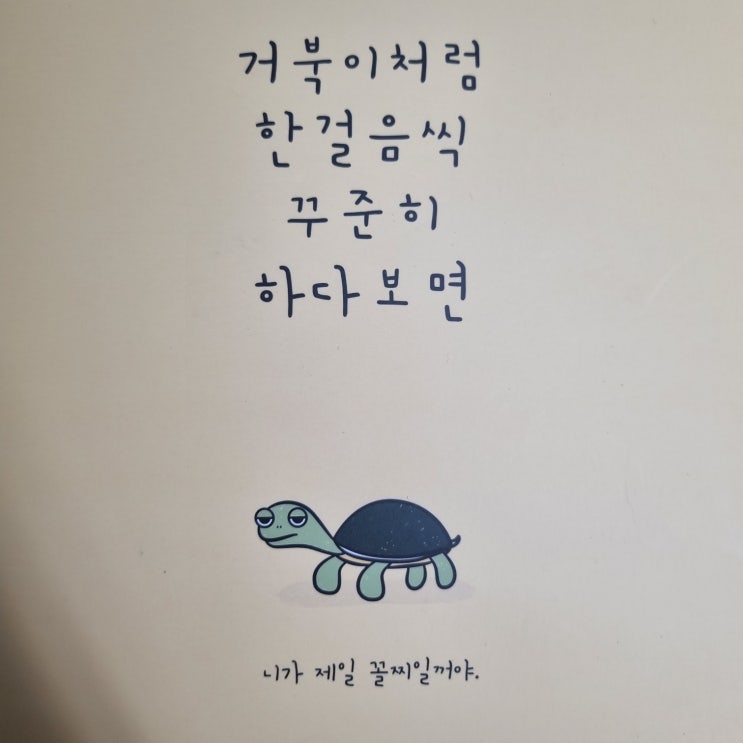 거북이처럼
한걸음씩
꾸준히
하다보면
니가 제일 꼴찌일꺼야.